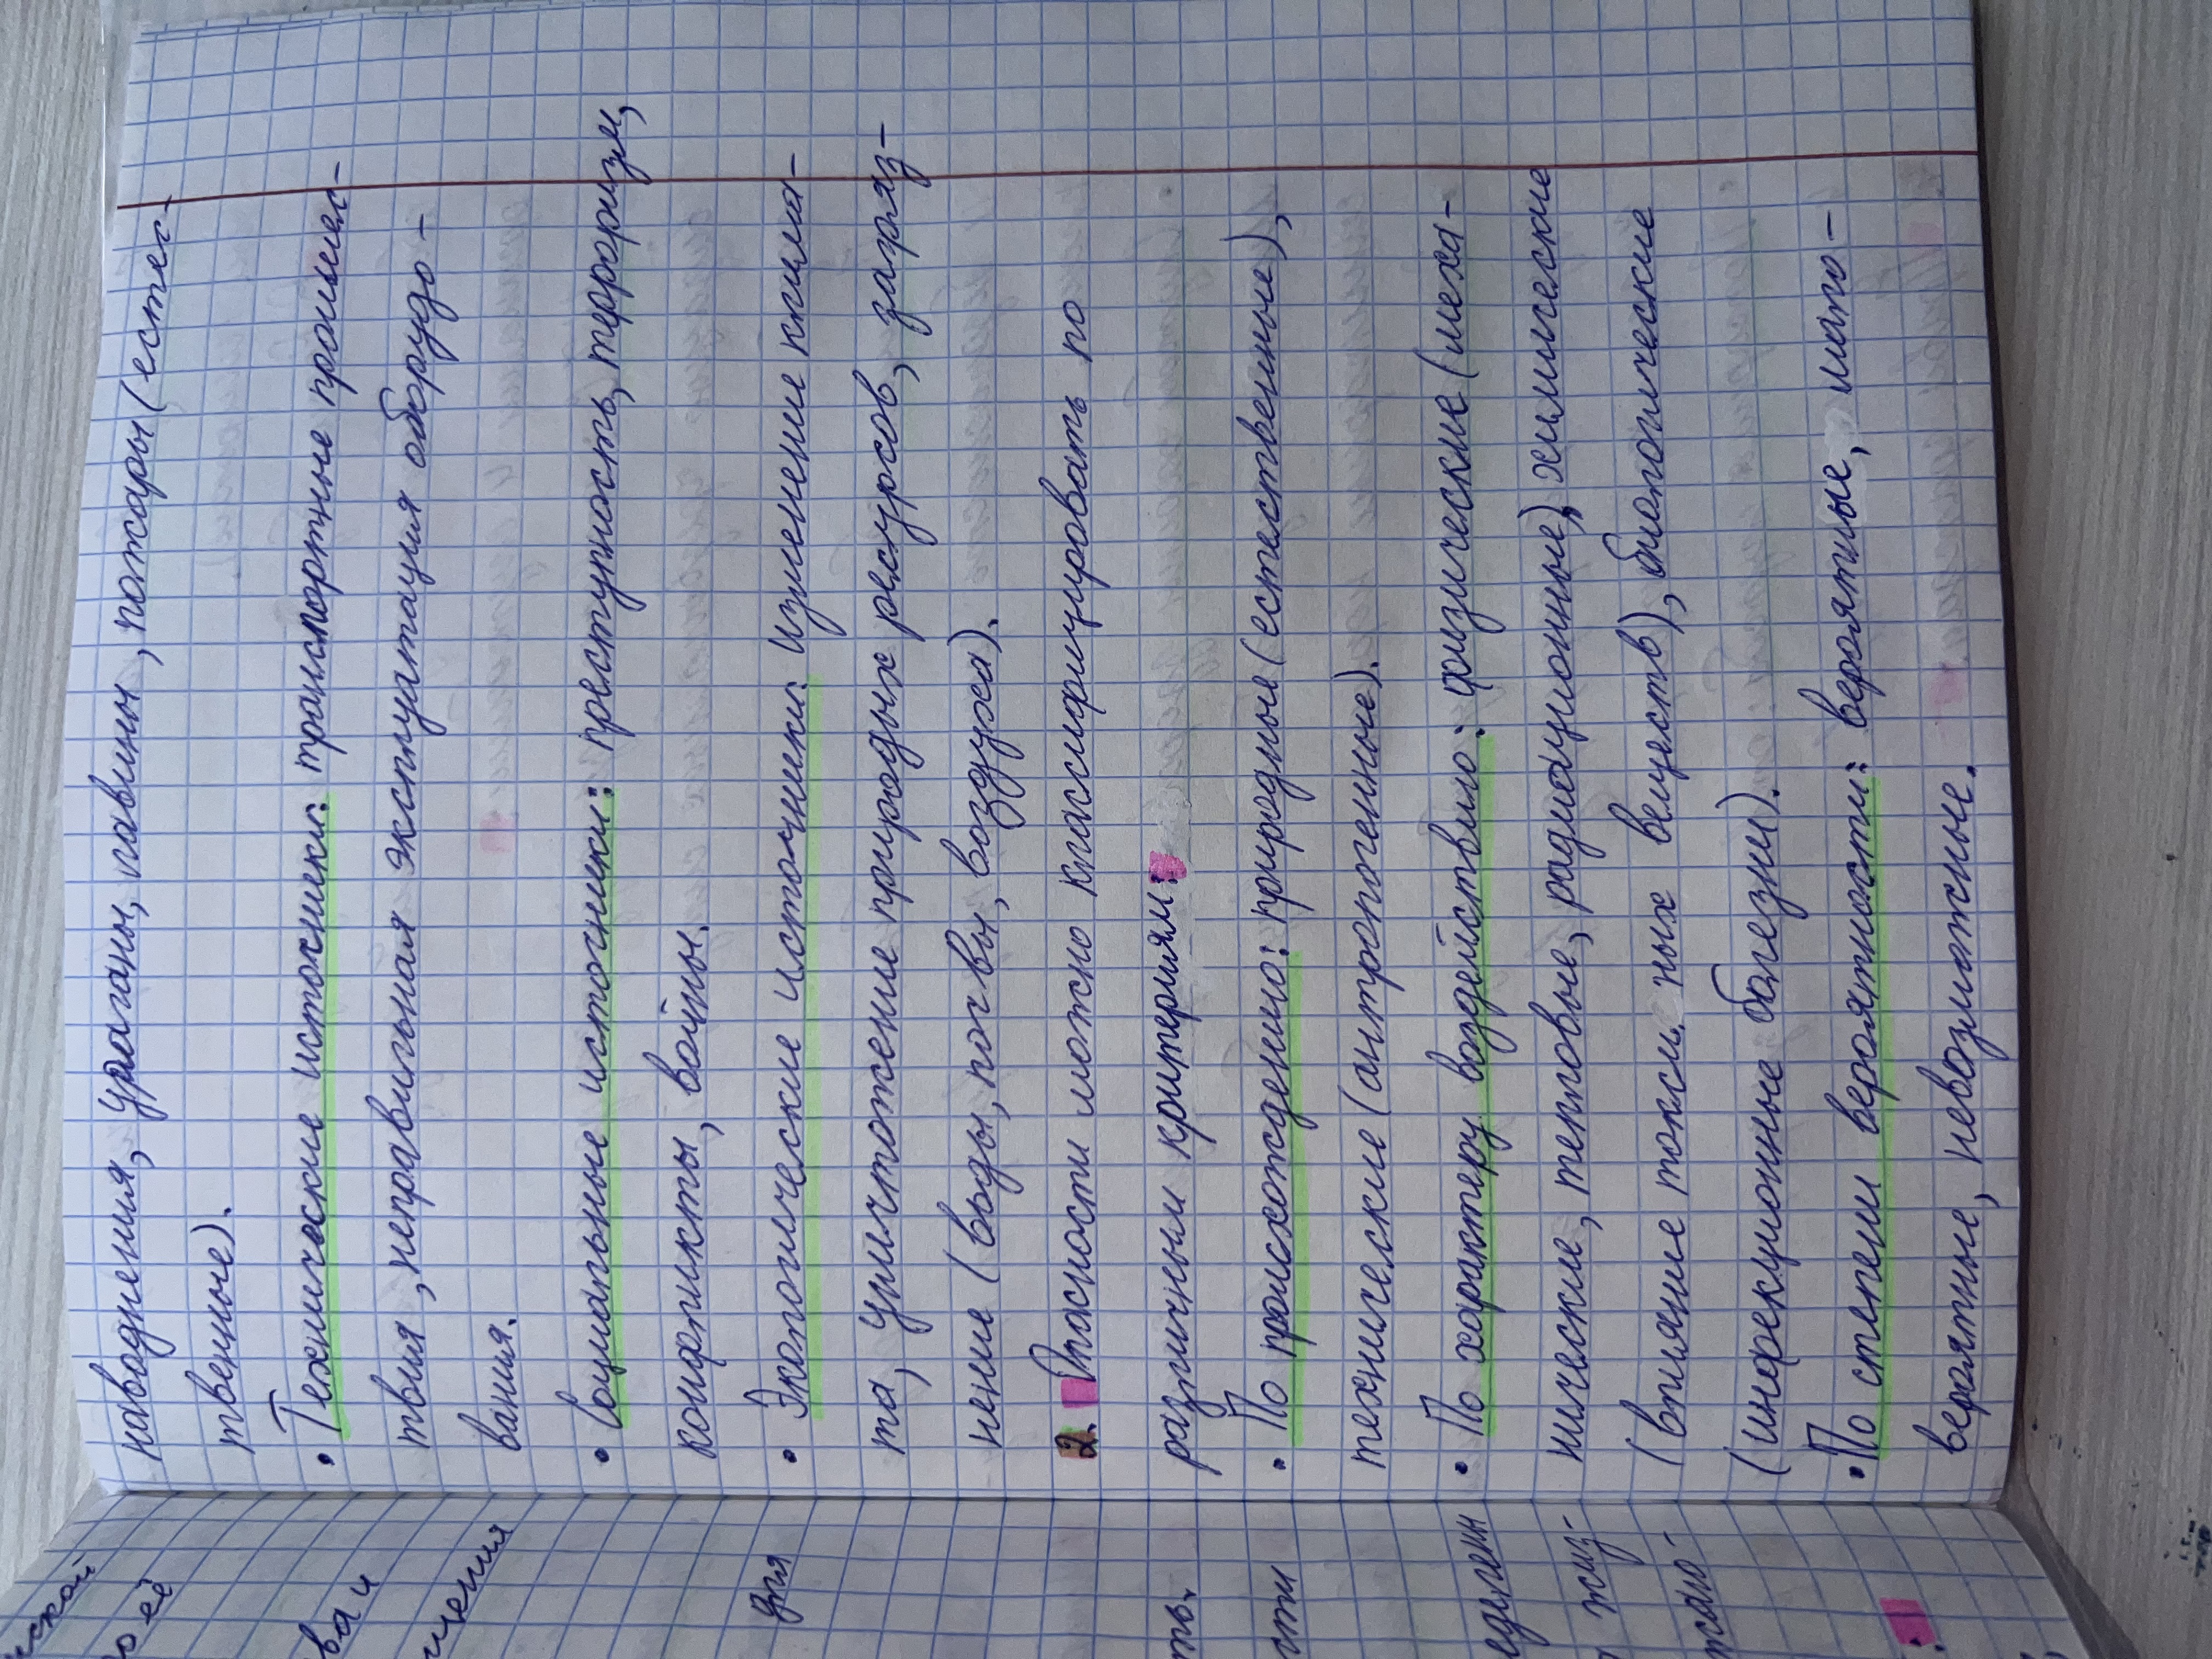 наводнения, ураганы, лавины, пожары (естес-
твенные).
• Технические источники: транспортные проишес-
твия, неправильная эксплуатация оборудо-
вания.
• Социальные источники: преступность, тероризм,
конфликты, войны.
• Экологические источники: изменение клима-
та, уничтожение природых ресурсов, загряз-
нение (воды, почвы, воздуха).
2. Опасности можно классифицировать по
различным критериям:
• По происхождению: природные (естественные),
технические (антропогенные).
• По характеру воздействию: физические (меха-
нические, тепловые, радиационные), химические
(влияние токси ных веществ), биологические
(инфекционные болезни).
• По степени вероятности: вероятные, мало-
вероятные, невозможные.
ской
о её
ва и
щения
для
ть.
сти
едулин
жиз-